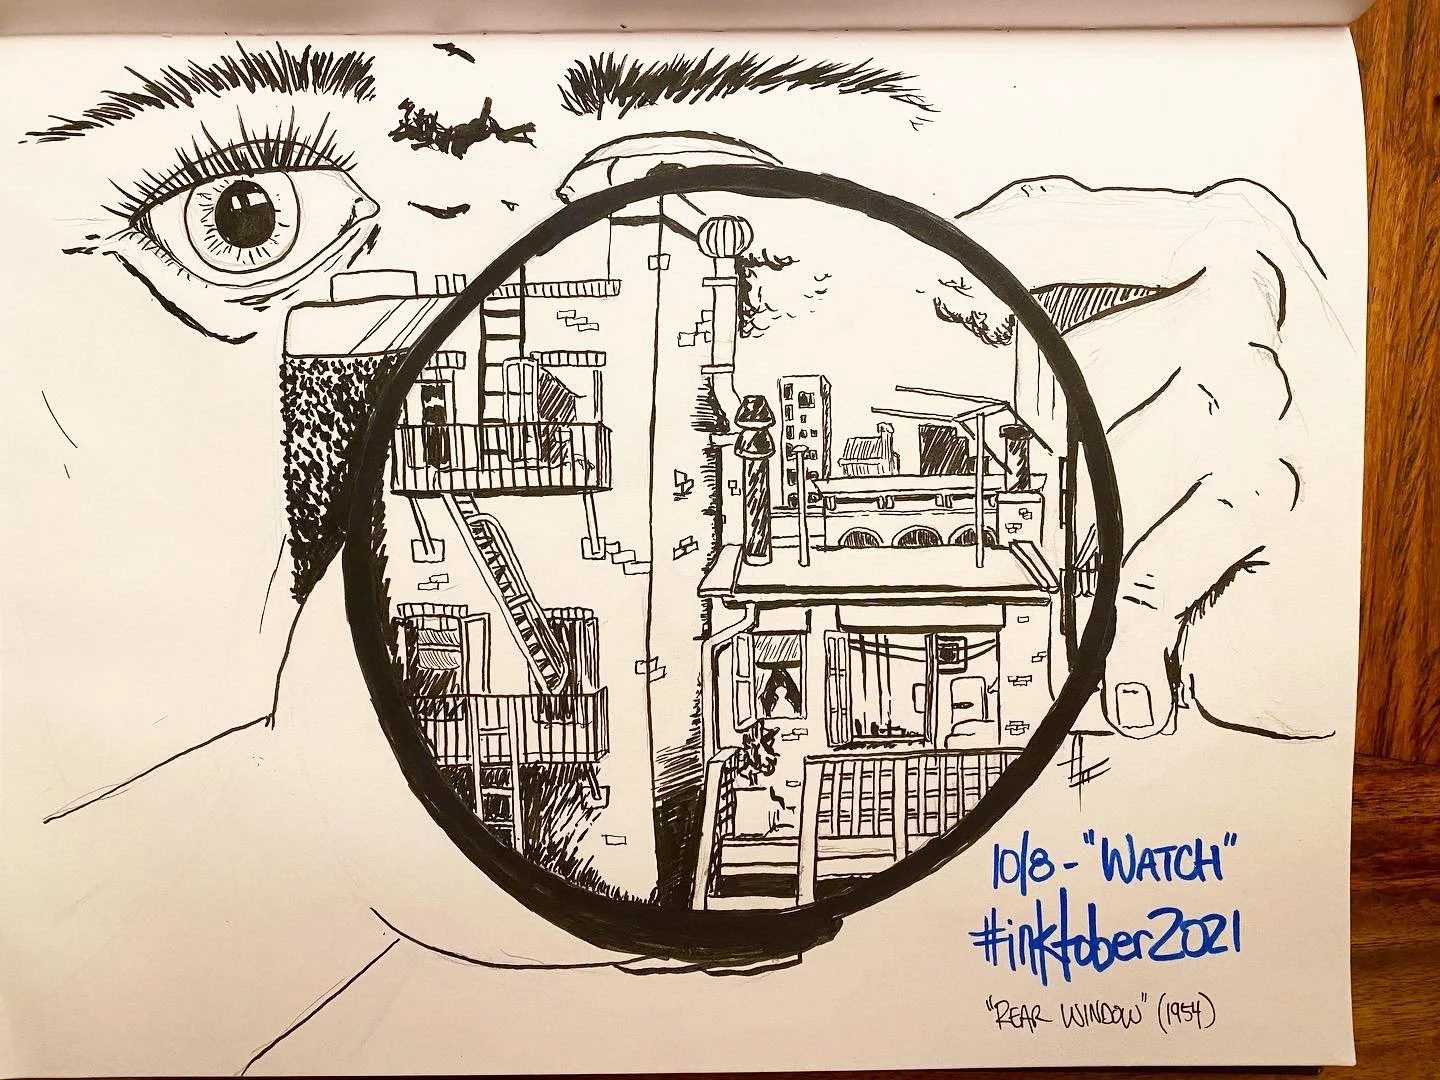 10/8 - "WATCH"
#inktober2021
"REAR WINDOW" (1954)